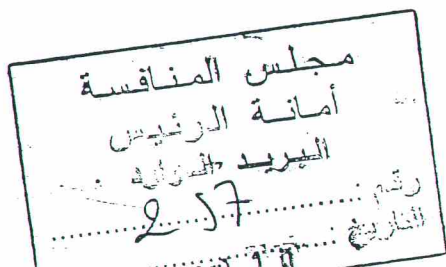 مجلس المنافسة
أمانة الرئيس
البريد الوارد
رقم 257
التاريخ